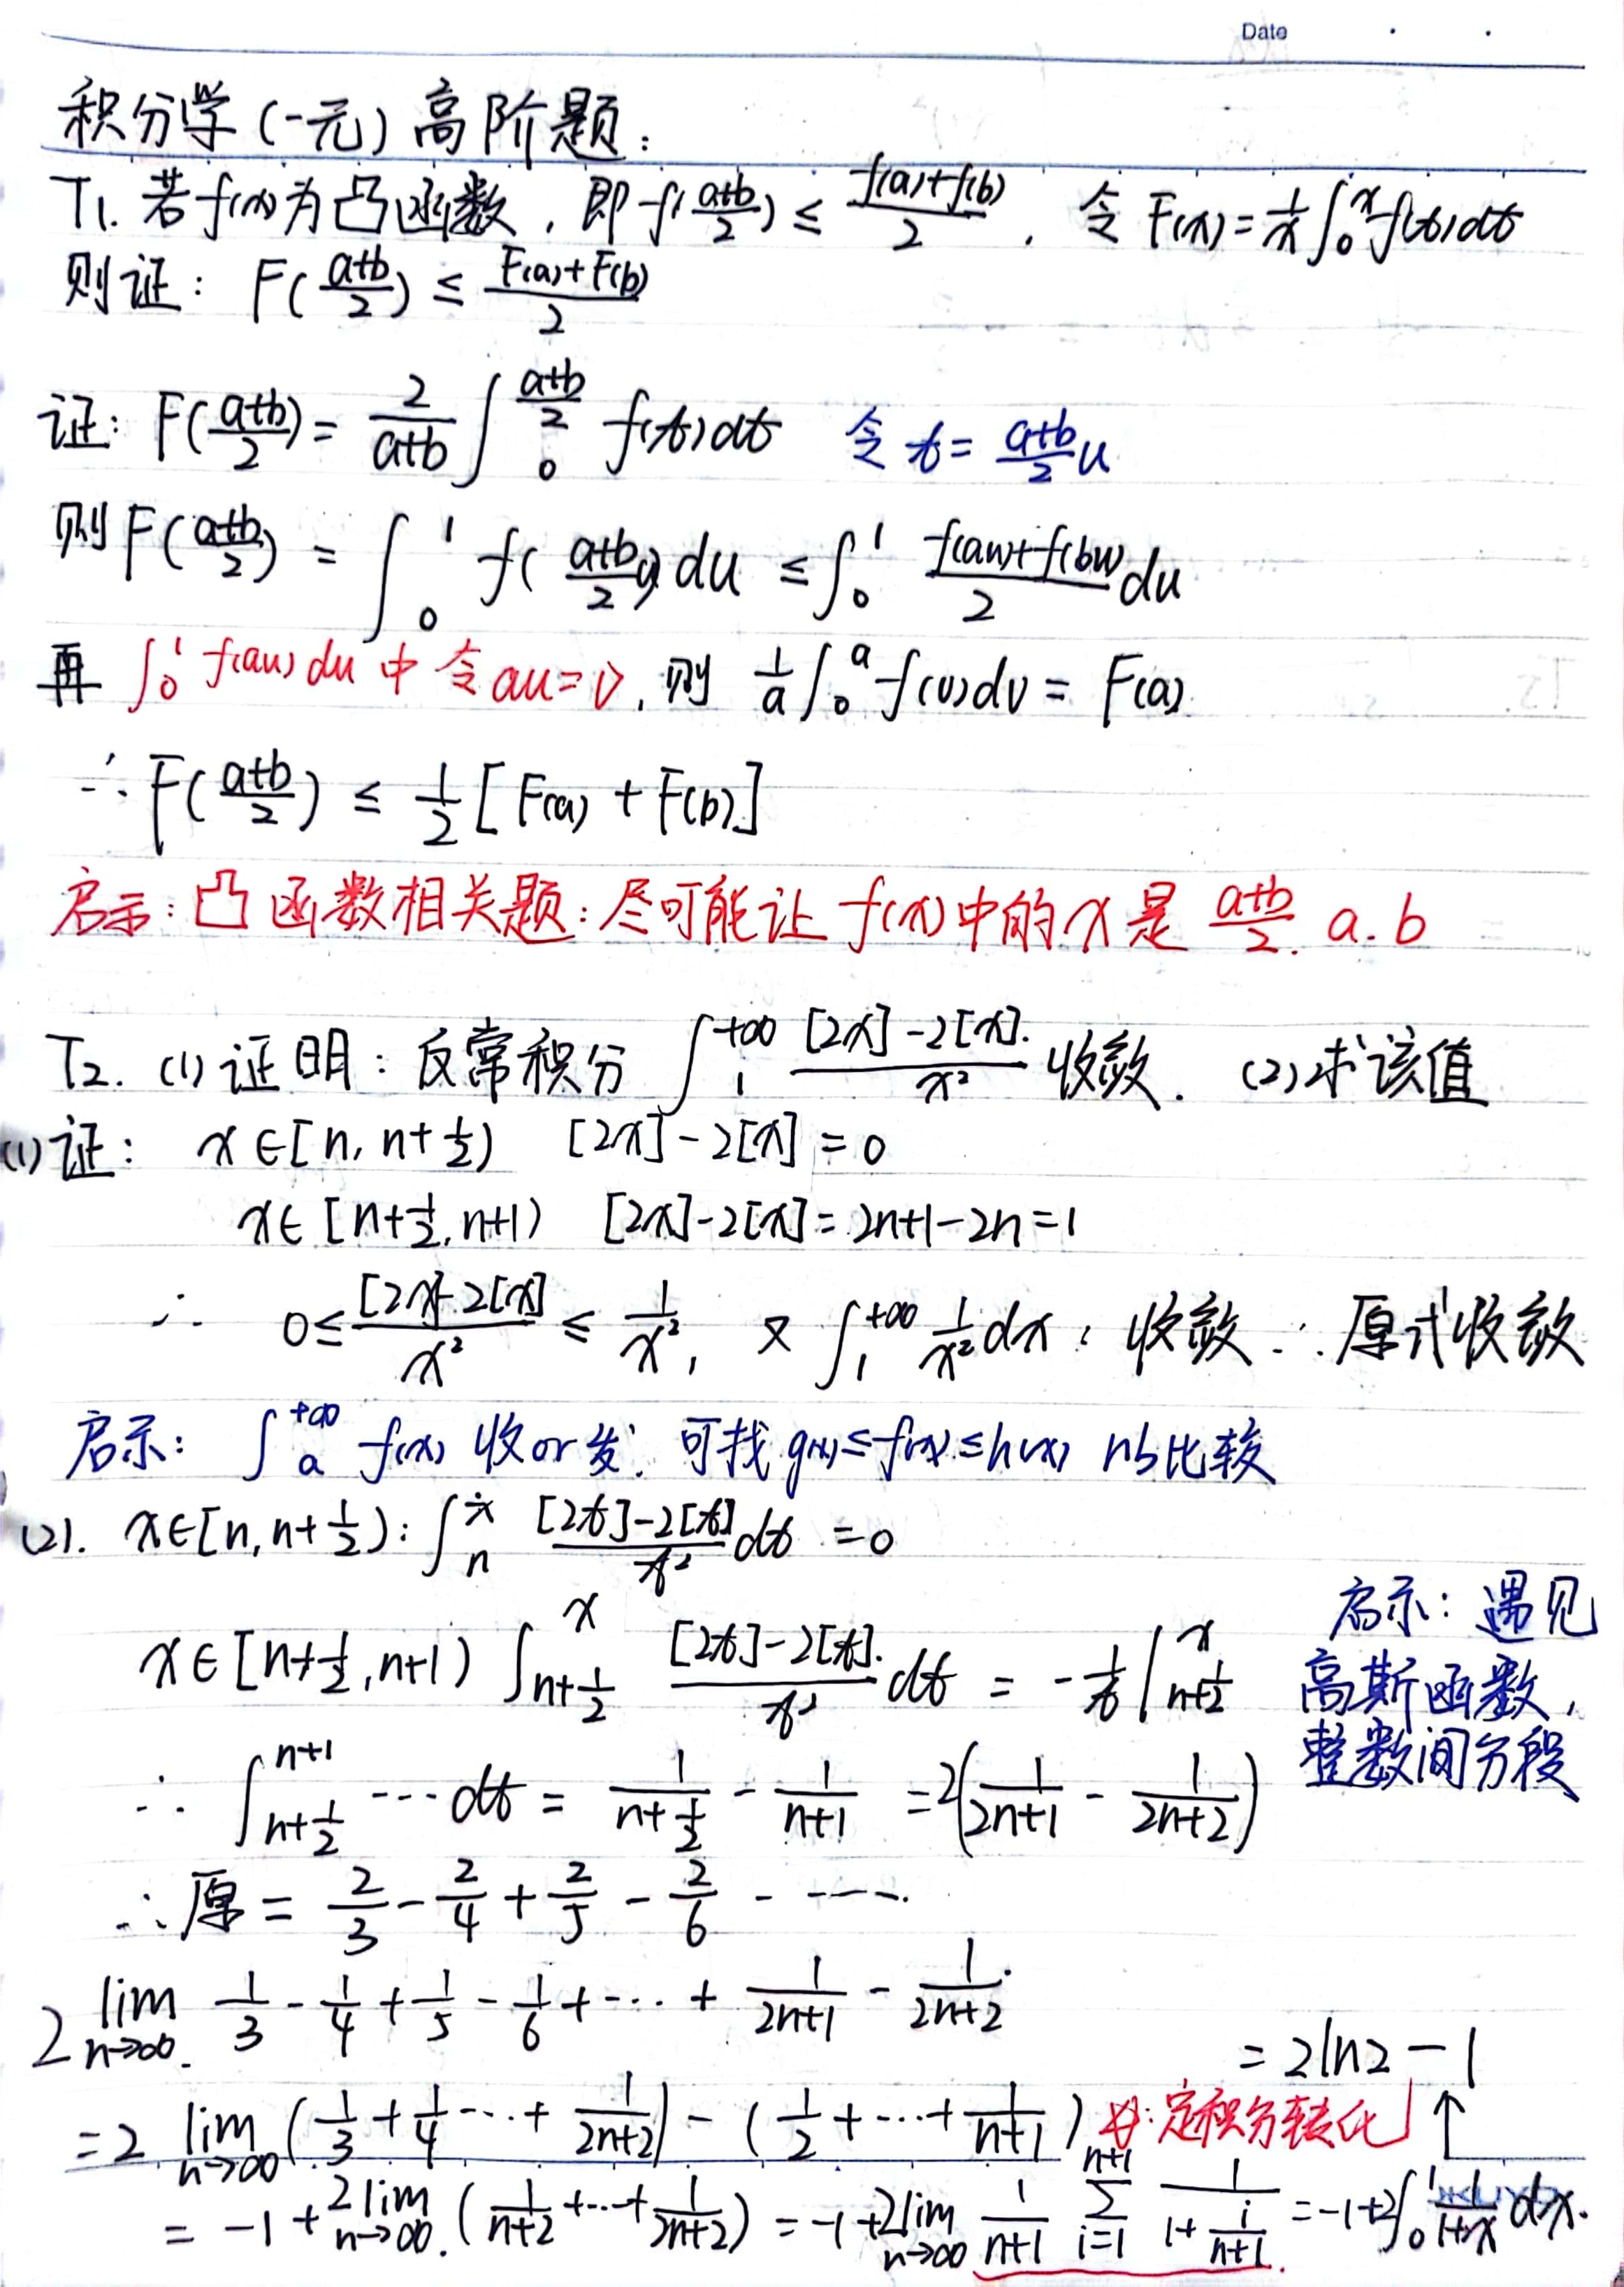 Date
积分学(一元)高阶题:
T1. 若f(x)为凸函数, 即f(\frac{a+b}{2}) ≤ \frac{f(a)+f(b)}{2}, 令 F(x)=\frac{1}{x}∫_0^x f(t)dt
则证: F(\frac{a+b}{2}) ≤ \frac{F(a)+F(b)}{2}
证: F(\frac{a+b}{2}) = \frac{2}{a+b}∫_0^{\frac{a+b}{2}} f(t)dt 令 t=\frac{a+b}{2}u
则F(\frac{a+b}{2}) = ∫_0^1 f(\frac{a+b}{2}u)du ≤ ∫_0^1 \frac{f(au)+f(bu)}{2}du
再 ∫_0^1 f(au)du 中令au=v, 则 \frac{1}{a}∫_0^a f(v)dv = F(a)
∴ F(\frac{a+b}{2}) ≤ \frac{1}{2}[F(a)+F(b)]
启示: 凸函数相关题: 尽可能让 f(x)中的x是 \frac{a+b}{2}. a. b
T2. (1)证明: 反常积分 ∫_1^{+∞} \frac{[2x]-2[x]}{x²} 收敛. (2)求该值
(1)证: x∈[n, n+\frac{1}{2}) [2x]-2[x]=0
x∈[n+\frac{1}{2}, n+1) [2x]-2[x]=2n+1-2n=1
∴ 0≤\frac{[2x]-2[x]}{x²} ≤ \frac{1}{x²}, 又 ∫_1^{+∞} \frac{1}{x²}dx: 收敛 ∴原式收敛
启示: ∫_a^{+∞} f(x) 收or发: 可找g(x)≤f(x)≤h(x) 比较
(2). x∈[n, n+\frac{1}{2}): ∫_n^x \frac{[2t]-2[t]}{t²}dt =0
x∈[n+\frac{1}{2}, n+1) ∫_{n+\frac{1}{2}}^x \frac{[2t]-2[t]}{t²}dt = -\frac{1}{t}|_{n+\frac{1}{2}}^x
启示: 遇见
高斯函数,
整数间分段
∴ ∫_{n+\frac{1}{2}}^{n+1} ··· dt = \frac{1}{n+\frac{1}{2}} - \frac{1}{n+1} = 2(\frac{1}{2n+1} - \frac{1}{2n+2})
∴原 = \frac{2}{3} - \frac{2}{4} + \frac{2}{5} - \frac{2}{6} - ·····
2 \lim_{n→∞} \frac{1}{3} - \frac{1}{4} + \frac{1}{5} - \frac{1}{6} + ··· + \frac{1}{2n+1} - \frac{1}{2n+2}
= 2ln2 - 1
= 2 \lim_{n→∞} (\frac{1}{3} + \frac{1}{4} ··· + \frac{1}{2n+2}) - (\frac{1}{2} + ··· + \frac{1}{n+1}) 定积分转化 ↑
= -1 + 2\lim_{n→∞} (\frac{1}{n+2} + ··· + \frac{1}{2n+2}) = -1 + 2\lim_{n→∞} \frac{1}{n+1} ∑_{i=1}^{n+1} \frac{1}{1+\frac{i}{n+1}} = -1+2∫_0^1 \frac{1}{1+x} dx.